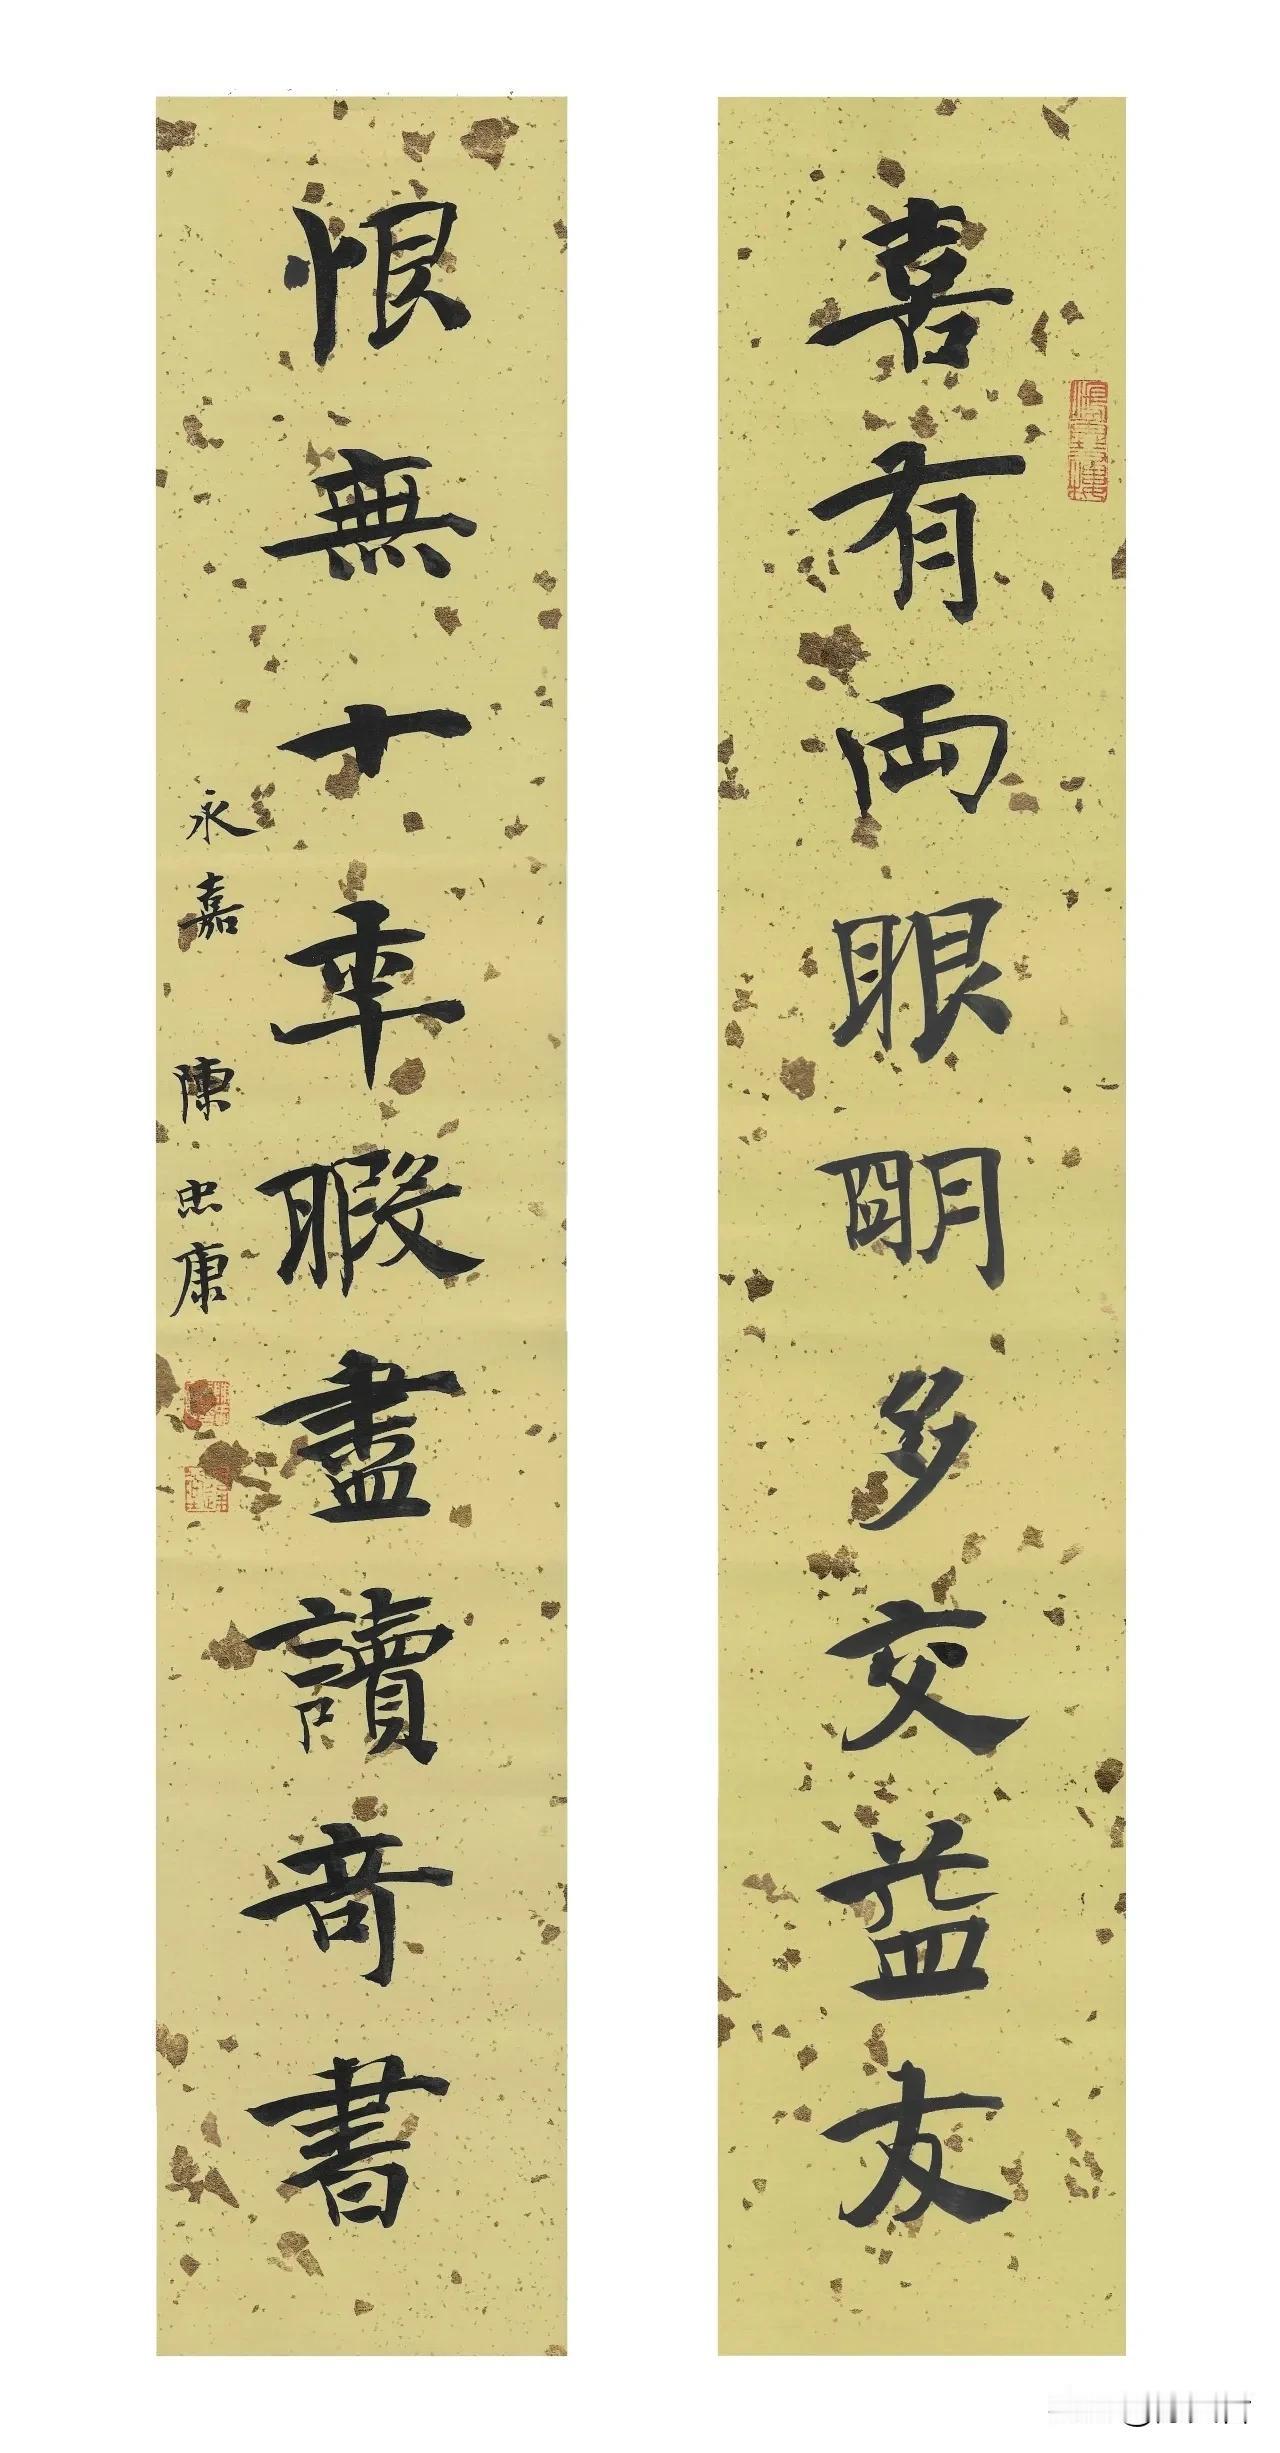 喜有兩眼明多交益友
恨無十年暇盡讀奇書
永嘉 陳忠康